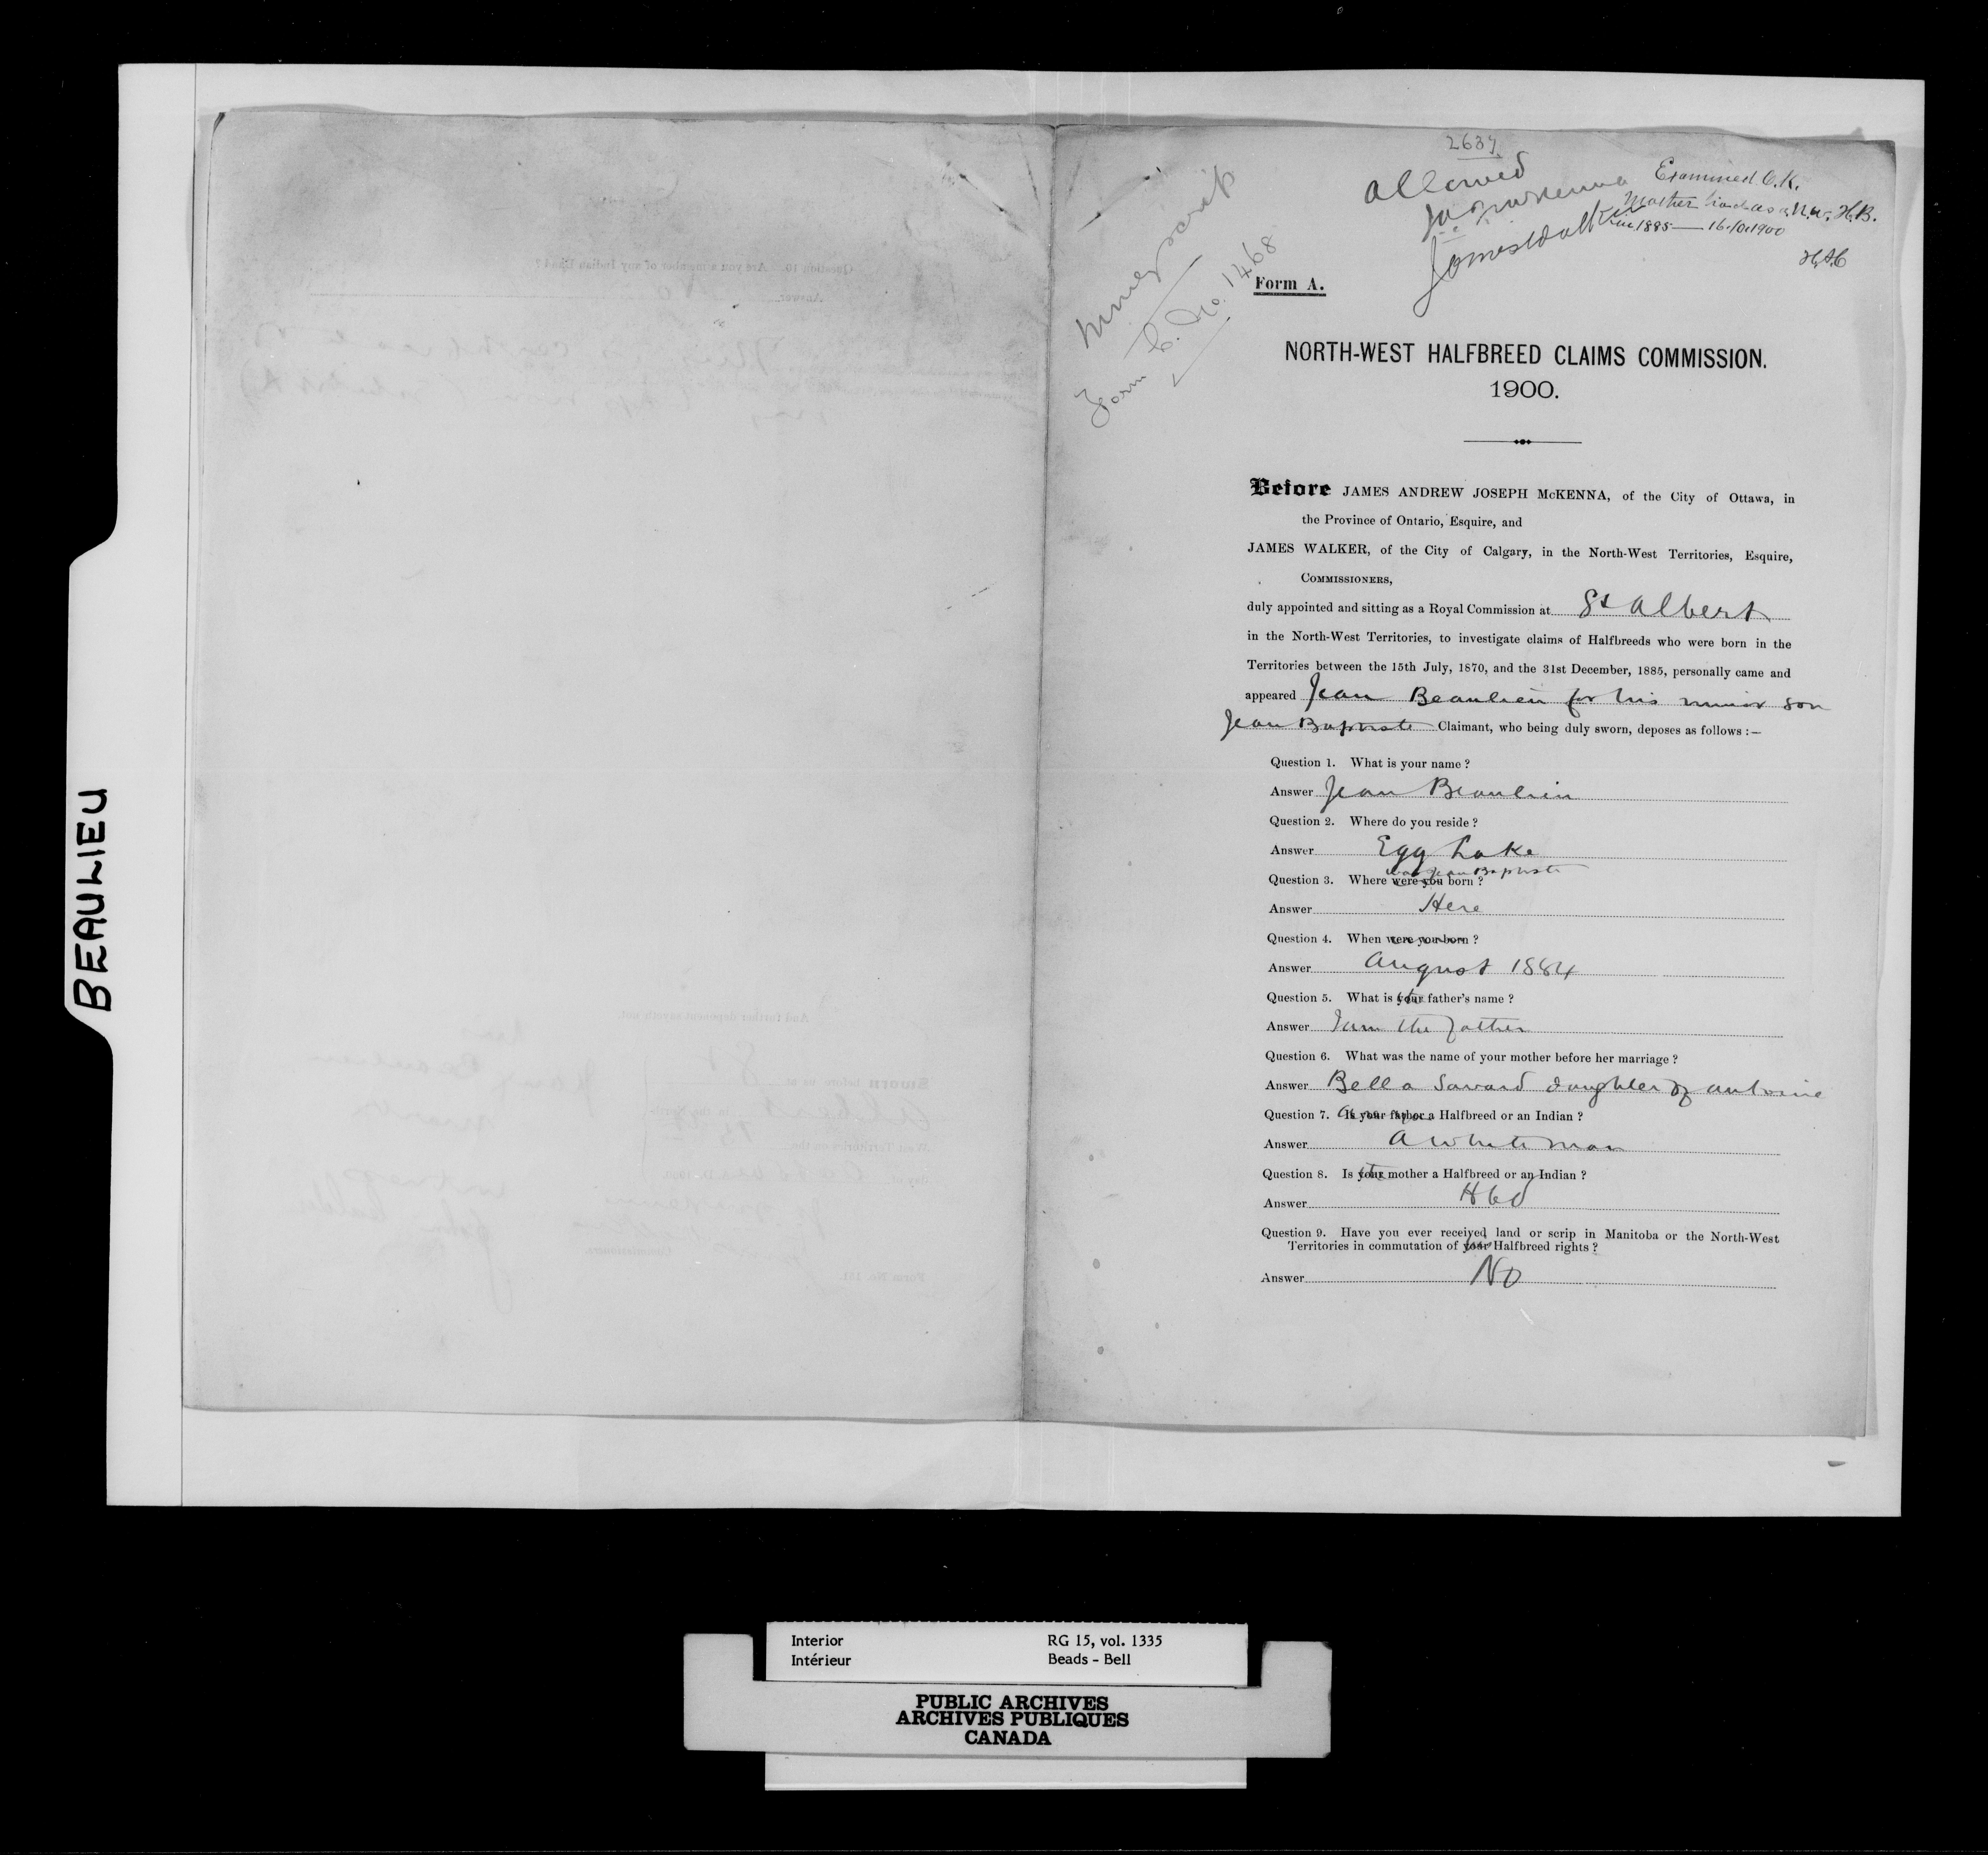 BEAULIEU
2637
Allowed
JAJ McKenna
James Walker
Examined O.K.
Mother had as a N.W. H.B.
in 1885 — 16.10.1900
Money scrip
Form C. No. 1468
Form A.
NORTH-WEST HALFBREED CLAIMS COMMISSION.
1900.
Before JAMES ANDREW JOSEPH McKENNA, of the City of Ottawa, in
the Province of Ontario, Esquire, and
JAMES WALKER, of the City of Calgary, in the North-West Territories, Esquire,
COMMISSIONERS,
duly appointed and sitting as a Royal Commission at St Albert
in the North-West Territories, to investigate claims of Halfbreeds who were born in the
Territories between the 15th July, 1870, and the 31st December, 1885, personally came and
appeared Jean Beaulieu for his minor son
Jean Baptiste Claimant, who being duly sworn, deposes as follows :—
Question 1. What is your name ?
Answer Jean Beaulieu
Question 2. Where do you reside ?
Answer Egg Lake
was Jean Baptiste
Question 3. Where were you born ?
Answer Here
Question 4. When were you born ?
Answer August 1884
Question 5. What is your father's name ?
Answer I am the father
Question 6. What was the name of your mother before her marriage ?
Answer Bella Savard daughter of Antoine
Question 7. Are you Is your father a Halfbreed or an Indian ?
Answer A white man
Question 8. Is your the mother a Halfbreed or an Indian ?
Answer Hbd
Question 9. Have you ever received land or scrip in Manitoba or the North-West
Territories in commutation of your Halfbreed rights ?
Answer No
Interior RG 15, vol. 1335
Intérieur Beads - Bell
PUBLIC ARCHIVES
ARCHIVES PUBLIQUES
CANADA